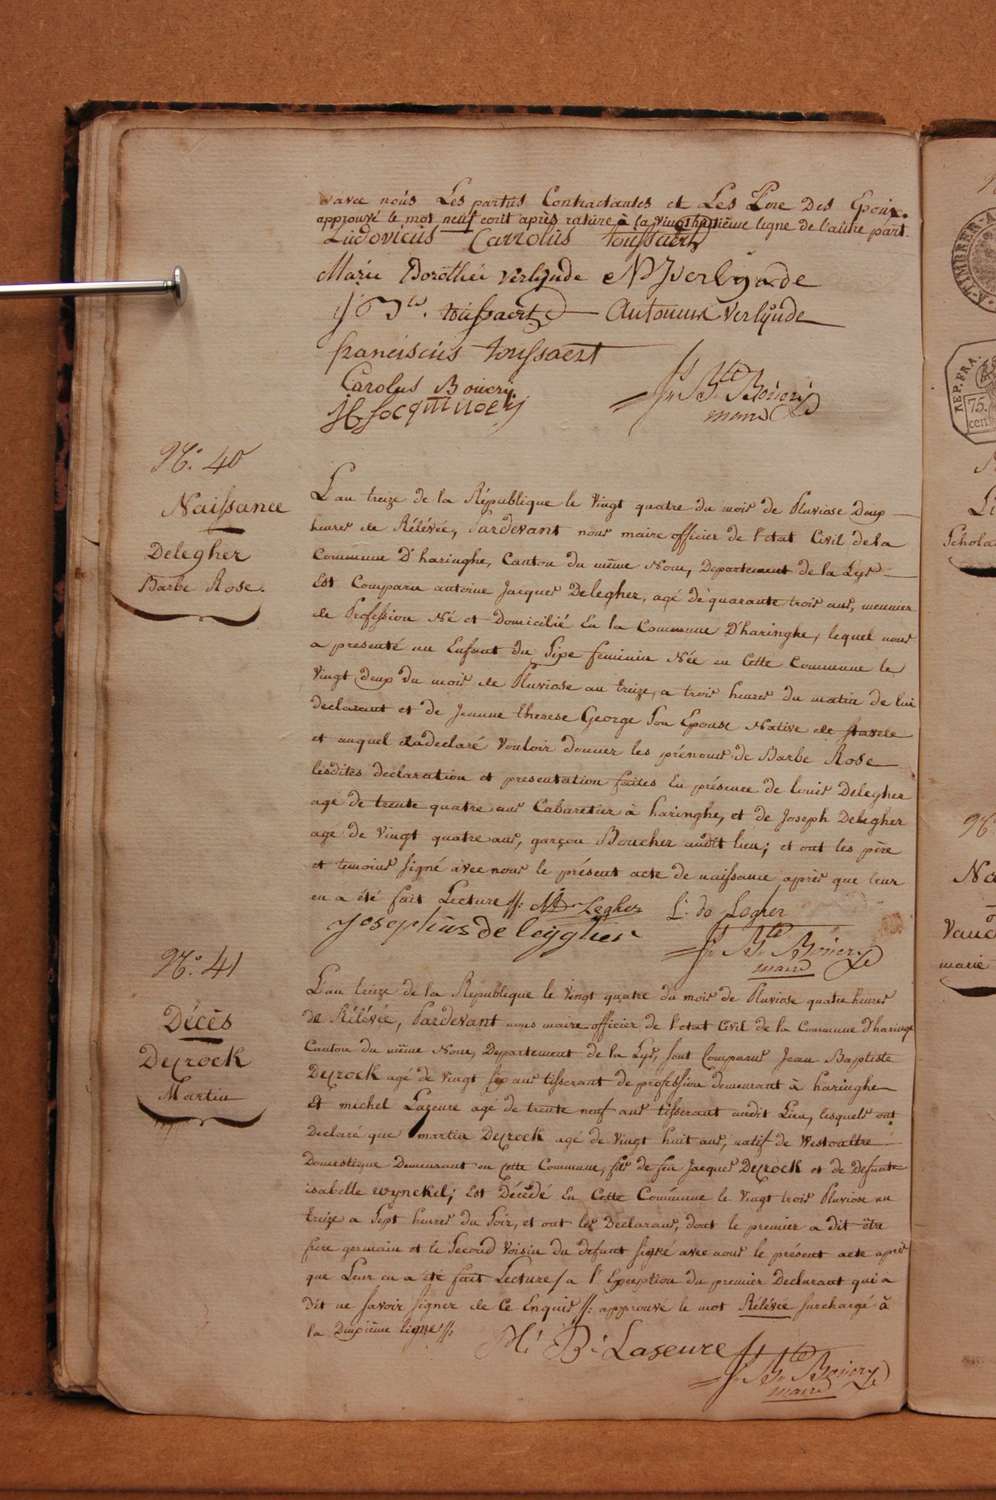 avec nous Les parties Contractantes et Les Pere Des Epoux.
approuvé le mot neuf ecrit après rature à la vingthuitieme ligne de l'autre part.
Ludovicus Carrolus toussaert
Marie Dorothée verlynde N J verlynde
J Bte. toussaert Antoinne Verlynde
franciscus toussaert
Carolus Bouery
Jn Bte Bouery
maire
No. 40
Naissance
Delegher
Barbe Rose.
L'an treize de la République le vingt quatre du mois de Pluviose deux
heures de Rélévée, Pardevant nous maire officier de l'etat Civil de la
Commune D'haringhe, Canton du même Nom, Departement de la Lys
Est Comparu antoine Jacques Delegher, agé de quarante trois ans, meunier
de Profession Né et Domicilié En la Commune D'haringhe, lequel nous
a presenté un Enfant du Sexe feminin Née en Cette Commune le
vingt deux du mois de Pluviose an treize, a trois heures du matin de lui
declarant et de Jeanne therese George Son Epouse Native de Stavele
et auquel il a declaré vouloir donner les prénoms de Barbe Rose
lesdites declaration et presentation faites En présence de louis Delegher
agé de trente quatre ans Cabaretier à haringhe, et de Joseph Delegher
agé de vingt quatre ans, garçon Boucher audit lieu; et ont les père
et temoins signé avec nous le présent acte de naissance après que leur
en a été fait Lecture //: Legher L: de Legher
Josephus de leygher
Jn Bte Bouery
maire
No. 41
Décès
Decrock
Martin
L'an treize de la Republique le vingt quatre du mois de Pluviose quatre heures
de Rélévée, Pardevant nous maire officier de l'etat Civil de la Commune D'haringe
Canton du même Nom, Departement de la Lys, sont Comparus Jean Baptiste
Decrock agé de vingt six ans tisserant de profession demeurant à haringhe
Et michel Lazeure agé de trente neuf ans tisserant audit Lieu, lesquels ont
Declaré que martin Decrock agé de vingt huit ans, natif de Westoutre
Domestique Demeurant en Cette Commune, fils de feu Jacques Decrock et de Defunte
isabelle wynckel; Est Décedé En Cette Commune le vingt trois Pluviose an
treize a Sept heures du Soir, et ont les Declarans, dont le premier a dit être
frere germain et le Second voisin du defunt signé avec nous le présent acte après
que Leur en a été fait Lecture / a l'Exception du premier Declarant qui a
Dit ne Savoir signer de Ce Enquis //: approuvé le mot Rélévée surchargé à
la Deuxième ligne //.
M: B: Laseure
Jn Bte Bouery
maire